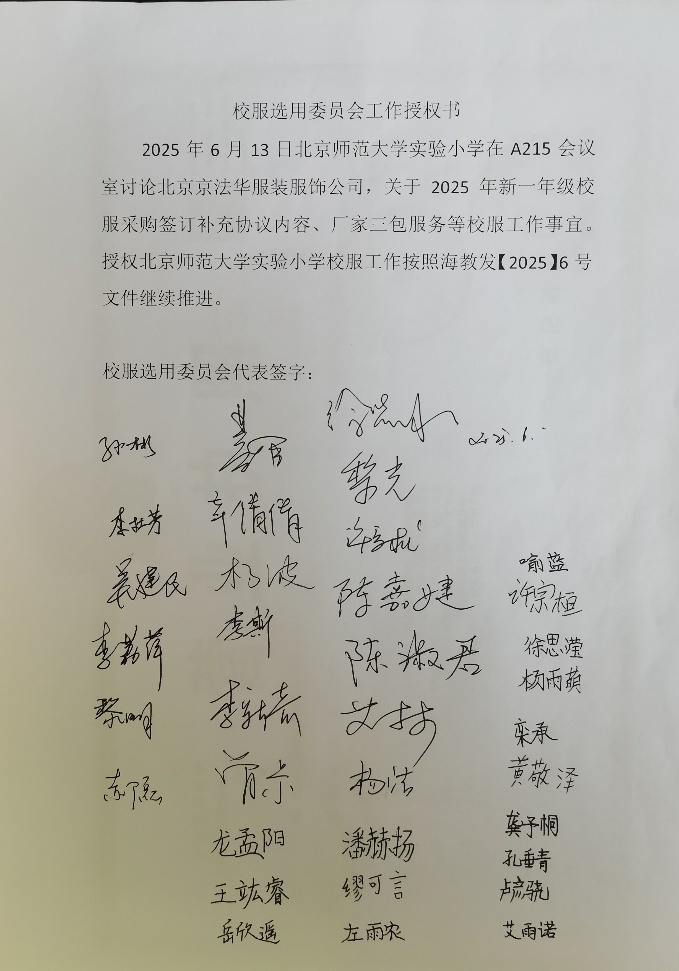 校服选用委员会工作授权书
2025 年 6 月 13 日北京师范大学实验小学在 A215 会议
室讨论北京京法华服装服饰公司，关于 2025 年新一年级校
服采购签订补充协议内容、厂家三包服务等校服工作事宜。
授权北京师范大学实验小学校服工作按照海教发【2025】6 号
文件继续推进。
校服选用委员会代表签字：
孙彬
黎光
辛倩倩
喻蓝
吴建民 杨波 陈嘉婕 许宗桓
李斯 徐思滢
陈淑君 杨雨萌
黎明
栾承
杨洁 黄敬泽
龙孟阳 潘赫扬 龚予桐
孔垂青
王竑睿 缪可言 卢彦骁
岳欣遥 左雨农 艾雨诺